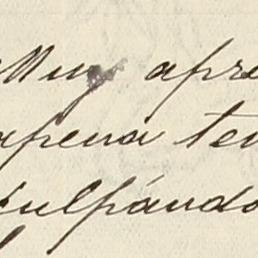 Muy apre
apena ten
culpándo